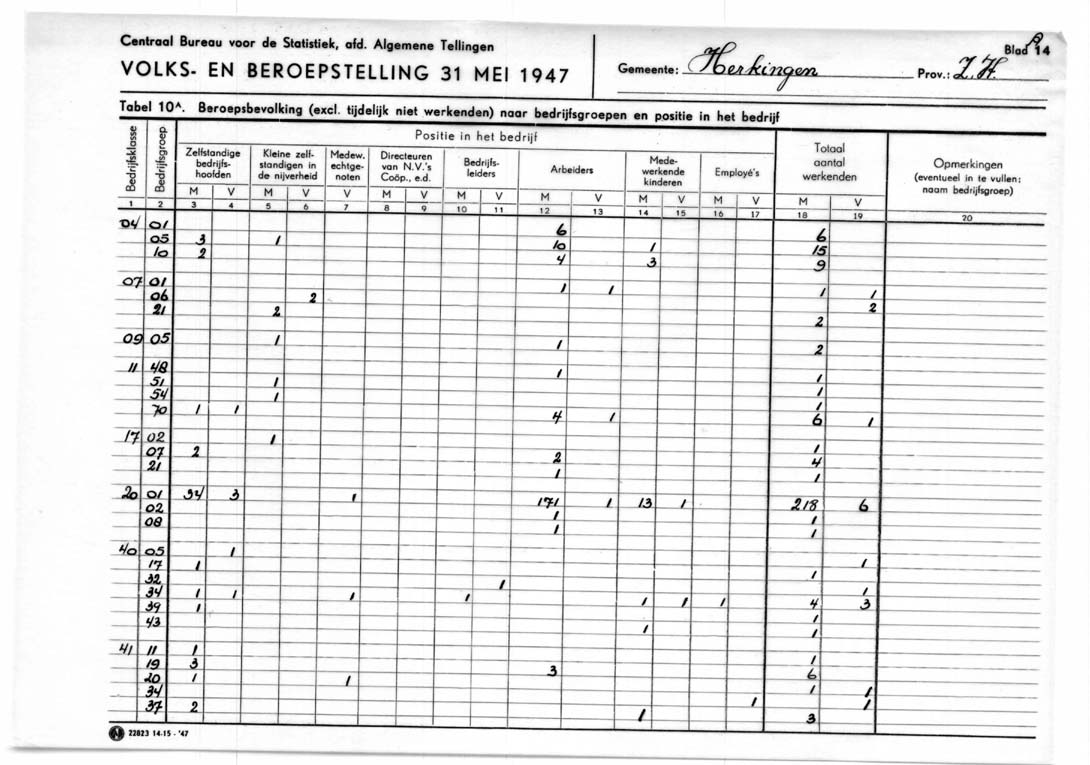 Centraal Bureau voor de Statistiek, afd. Algemene Tellingen
VOLKS- EN BEROEPSTELLING 31 MEI 1947
Gemeente: Herkingen Prov.: Z.H. Blad 14
Tabel 10A. Beroepsbevolking (excl. tijdelijk niet werkenden) naar bedrijfsgroepen en positie in het bedrijf
Bedrijfsklasse
Bedrijfsgroep
Positie in het bedrijf
Zelfstandige bedrijfs-hoofden
Kleine zelf-standigen in de nijverheid
Medew. echtge-noten
Directeuren van N.V.'s Coöp., e.d.
Bedrijfs-leiders
Arbeiders
Mede-werkende kinderen
Employé's
Totaal aantal werkenden
Opmerkingen (eventueel in te vullen: naam bedrijfsgroep)
M V M V V M V M V M V M V M V M V
1 2 3 4 5 6 7 8 9 10 11 12 13 14 15 16 17 18 19 20
04 01 6 6
05 3 1 10 1 15
10 2 4 3 9
07 01 1 1 1 1
06 2 2
21 2 2
09 05 1 1 2
11 48 1 1
51 1 1
54 1 1
70 1 1 4 1 6 1
17 02 1 1
07 2 2 4
21 1 1
20 01 34 3 1 171 1 13 1 218 6
02 1 1
08 1 1
40 05 1 1
17 1 1
32 1 1
34 1 1 1 1 1 1 1 4 3
39 1 1
43 1 1
41 11 1 1
19 3 3 6
20 1 1 1 1
34 1 1
37 2 1 3
22823 14-15 - '47